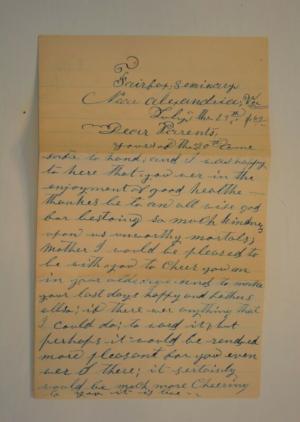 Fairfax Seminary
Near Alexandria, Va
July the 29th /62
Dear Parents,
yours of the 20th came
safe to hand, and I was happy
to here that you wer in the
enjoyment of good healthe —
thankes be to an all wise god
for bestoing so much kindness
upon us unworthy mortals,
Mother I would be pleased to
be with you to Cheer you on
in your olde age and to make
your last days happy and fathers
allso; if there wer anything that
I could do; to aid it; but
perhaps it would be rendred
more pleasant for you even
wer I there; it sertainly
would be much more Cheering
to you it is true